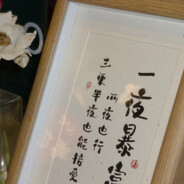 一夜暴富
两夜也行
三更半夜也能接受